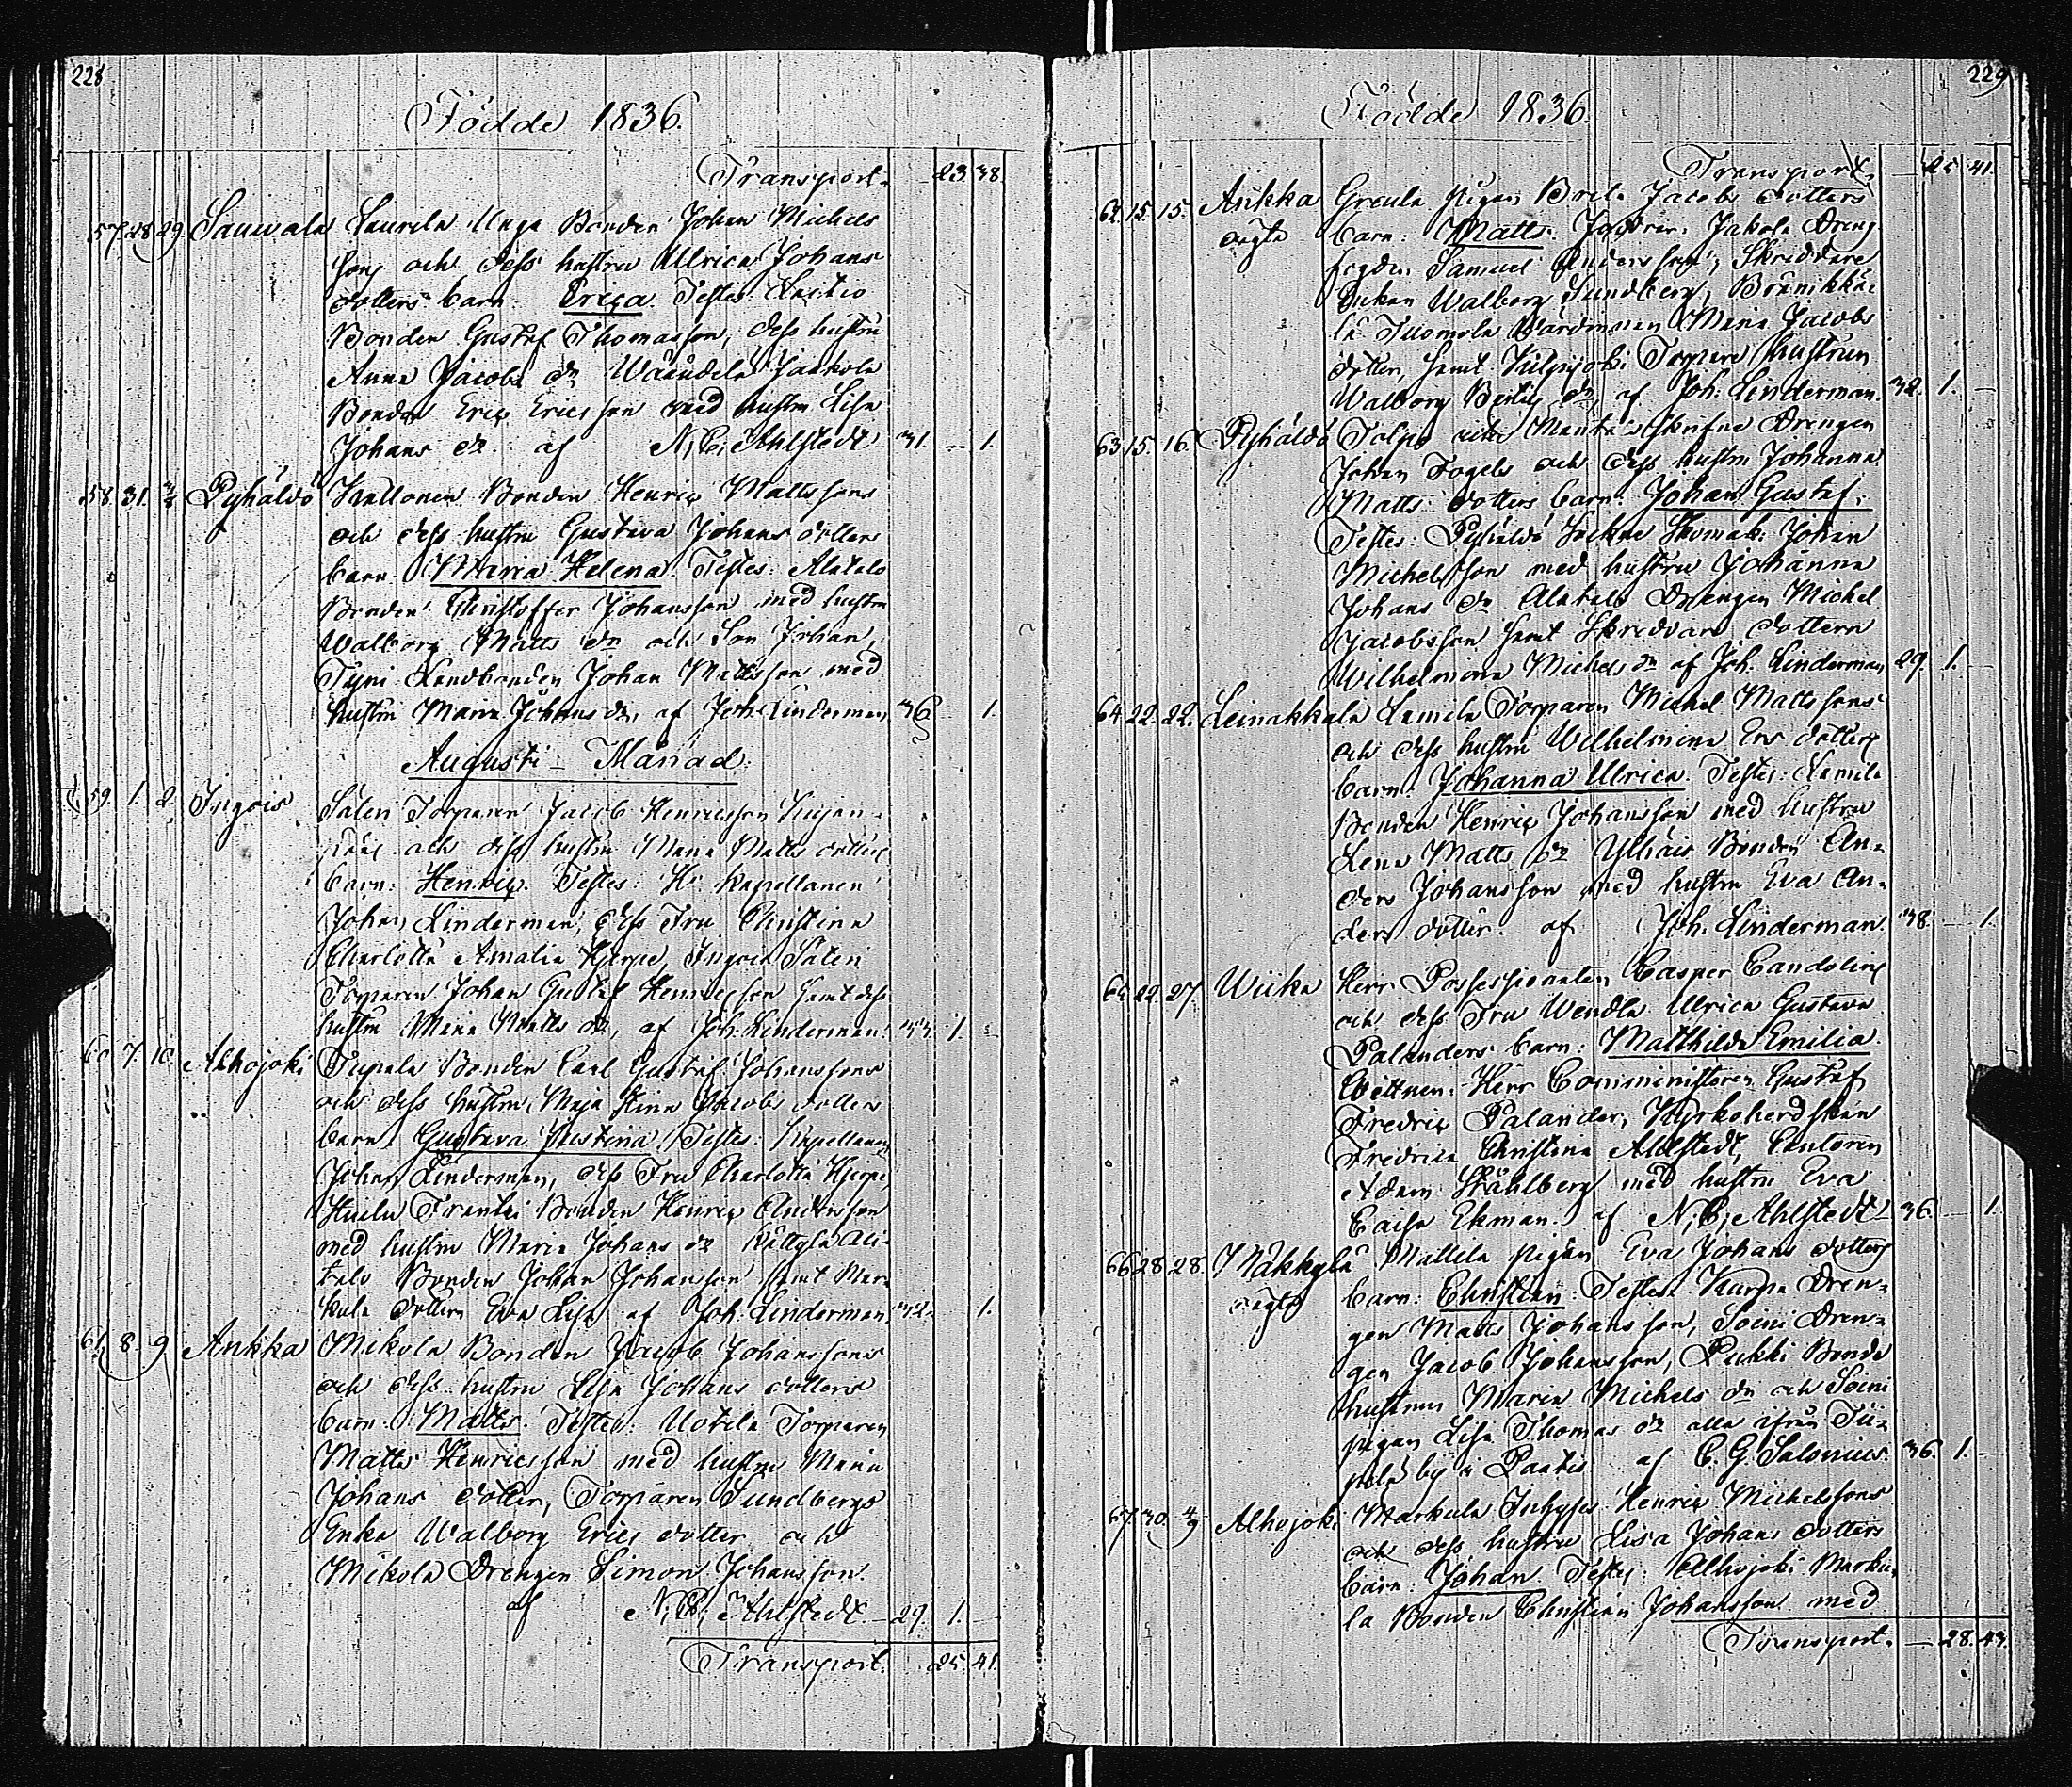 228
Födde 1836.
Transport. 23. 38.
57. 28 29. Sauwala Laurila Unga Bonden Johan Michels
Sons och dess hustru Ulrica Johans
dotters barn. Erica. Testes:
Bonden Gustaf Thomasson, dess hustru
Anna Jacobs dr Jaakola
Bonden Eric Ericsson med hustru Lisa
Johans dr. af N. C. Ahlstedt. 31. — 1.
58. 31. Pyhäldö Kallonen Bonden Henric Mattssons
och dess hustru Gustava Johans dotters
barn. Maria Helena. Testes: Alatalo
Bonden Christoffer Johansson med hustru
Walborg Matts dr och Son Johan,
Landbonden Johan Mattsson med
hustru Maria Johans dr, af Joh. Linderman 36 1.
Augusti Månad.
59. 1. 2. Ingois Torparen Jacob Henricsson
och dess hustru Maria Matts dotters
barn: Henric. Testes: Hr Kapellanen
Johan Linderman, dess Fru Christina
Charlotta Amalia Hjerpe, Ingois
Torparen Johan Gustaf Henricsson samt dess
hustru Maria Matts dr, af Joh. Linderman. 1.
60. 7. 10. Alhojoki Bonden Carl Gustaf Johanssons
och dess hustru Maja Stina Jacobs dotters
barn. Gustava Justina. Testes: Kapellanen
Johan Linderman, dess Fru Charlotta Hjerpe,
Bonden Henric Andersson
med hustru Maria Johans dr Ali-
talo Bonden Johan Johansson samt Mar-
kula dottern Eva Lisa af Joh. Linderman 32. 1.
61. 8. 9 Ankka Mikola Bonden Jacob Johanssons
och dess hustru Lisa Johans dotters
barn. Matts. Testes: Uotila Torparen
Matts Henricsson med hustru Maria
Johans dotter, Torparen Sundbergs
Enka Walborg Erics dotter och
Mikola Drengen Simon Johansson.
af N. C. Ahlstedt. 29. 1. —
Transport. 25. 41.
229
Födde 1836.
Transport. 25 41.
62. 15. 15. Ankka Greula pigan Brita Jacobs dotters
oägta barn: Matts. Jakola Dreng
fogden Samuel Andersson, Skräddare
Enkan Walborg Sundberg,
Tuomola Maria Jacobs
dotter, samt Torpare hustrun
Walborg dr, af Joh. Linderman. 32. 1. —
63. 15. 16. Pyhäldö Drengen
Johan Fogels och dess hustru Johanna
Matts dotters barn: Johan Gustaf.
Testes: Pyhäldö Sockne Skomak: Johan
Michelsson med hustru Johanna
Johans dr Alatalo Drengen Michel
Jacobsson samt Skreddare dottern
Wilhelmina Michels dr af Joh. Linderman 29. 1. —
64 22. 22. Leinakkala Lamila Torparen Michel Mattssons
och dess hustru Wilhelmina Ers dotters
barn. Johanna Ulrica. Testes: Lamila
Bonden Henric Johansson med hustru
Lena Matts dr Ylhäis Bonden An-
ders Johansson med hustru Eva An-
ders dotter. af Joh. Linderman. 38. — 1.
65 22. 27. Wiika Herr Possessionaten Casper Candolins
och dess Fru Wendla Ulrica Gustava
Palanders barn: Matthilda Emilia.
Wittnen: Herr Comministeren Gustaf
Fredric Palander, Kyrkoherdskan
Fredrica Christina Ahlstedt, Cantoren
Adam Ståhlberg med hustru Eva
Caisa Ekman. af N. C. Ahlstedt. 36. — 1.
66 28. 28. Mäkkylä Mattila pigan Eva Johans dotters
oägta barn: Christian. Testes: Kurpa Dren-
gen Matts Johansson, Soini Dren-
gen Jacob Johansson, Pukki Bonde
hustrun Maria Michels dr och Soini
pigan Lisa Thomas dr alla ifrån
by i Paatis af C. G. Salonius. 36. 1. —
67. 30. 4/9 Alhojoki Markula Inhyses Henric Michelssons
och dess hustru Lisa Johans dotters
barn: Johan. Testes: Alhojoki Marku-
la Bonden Christian Johansson med
Transport. — 28. 43.